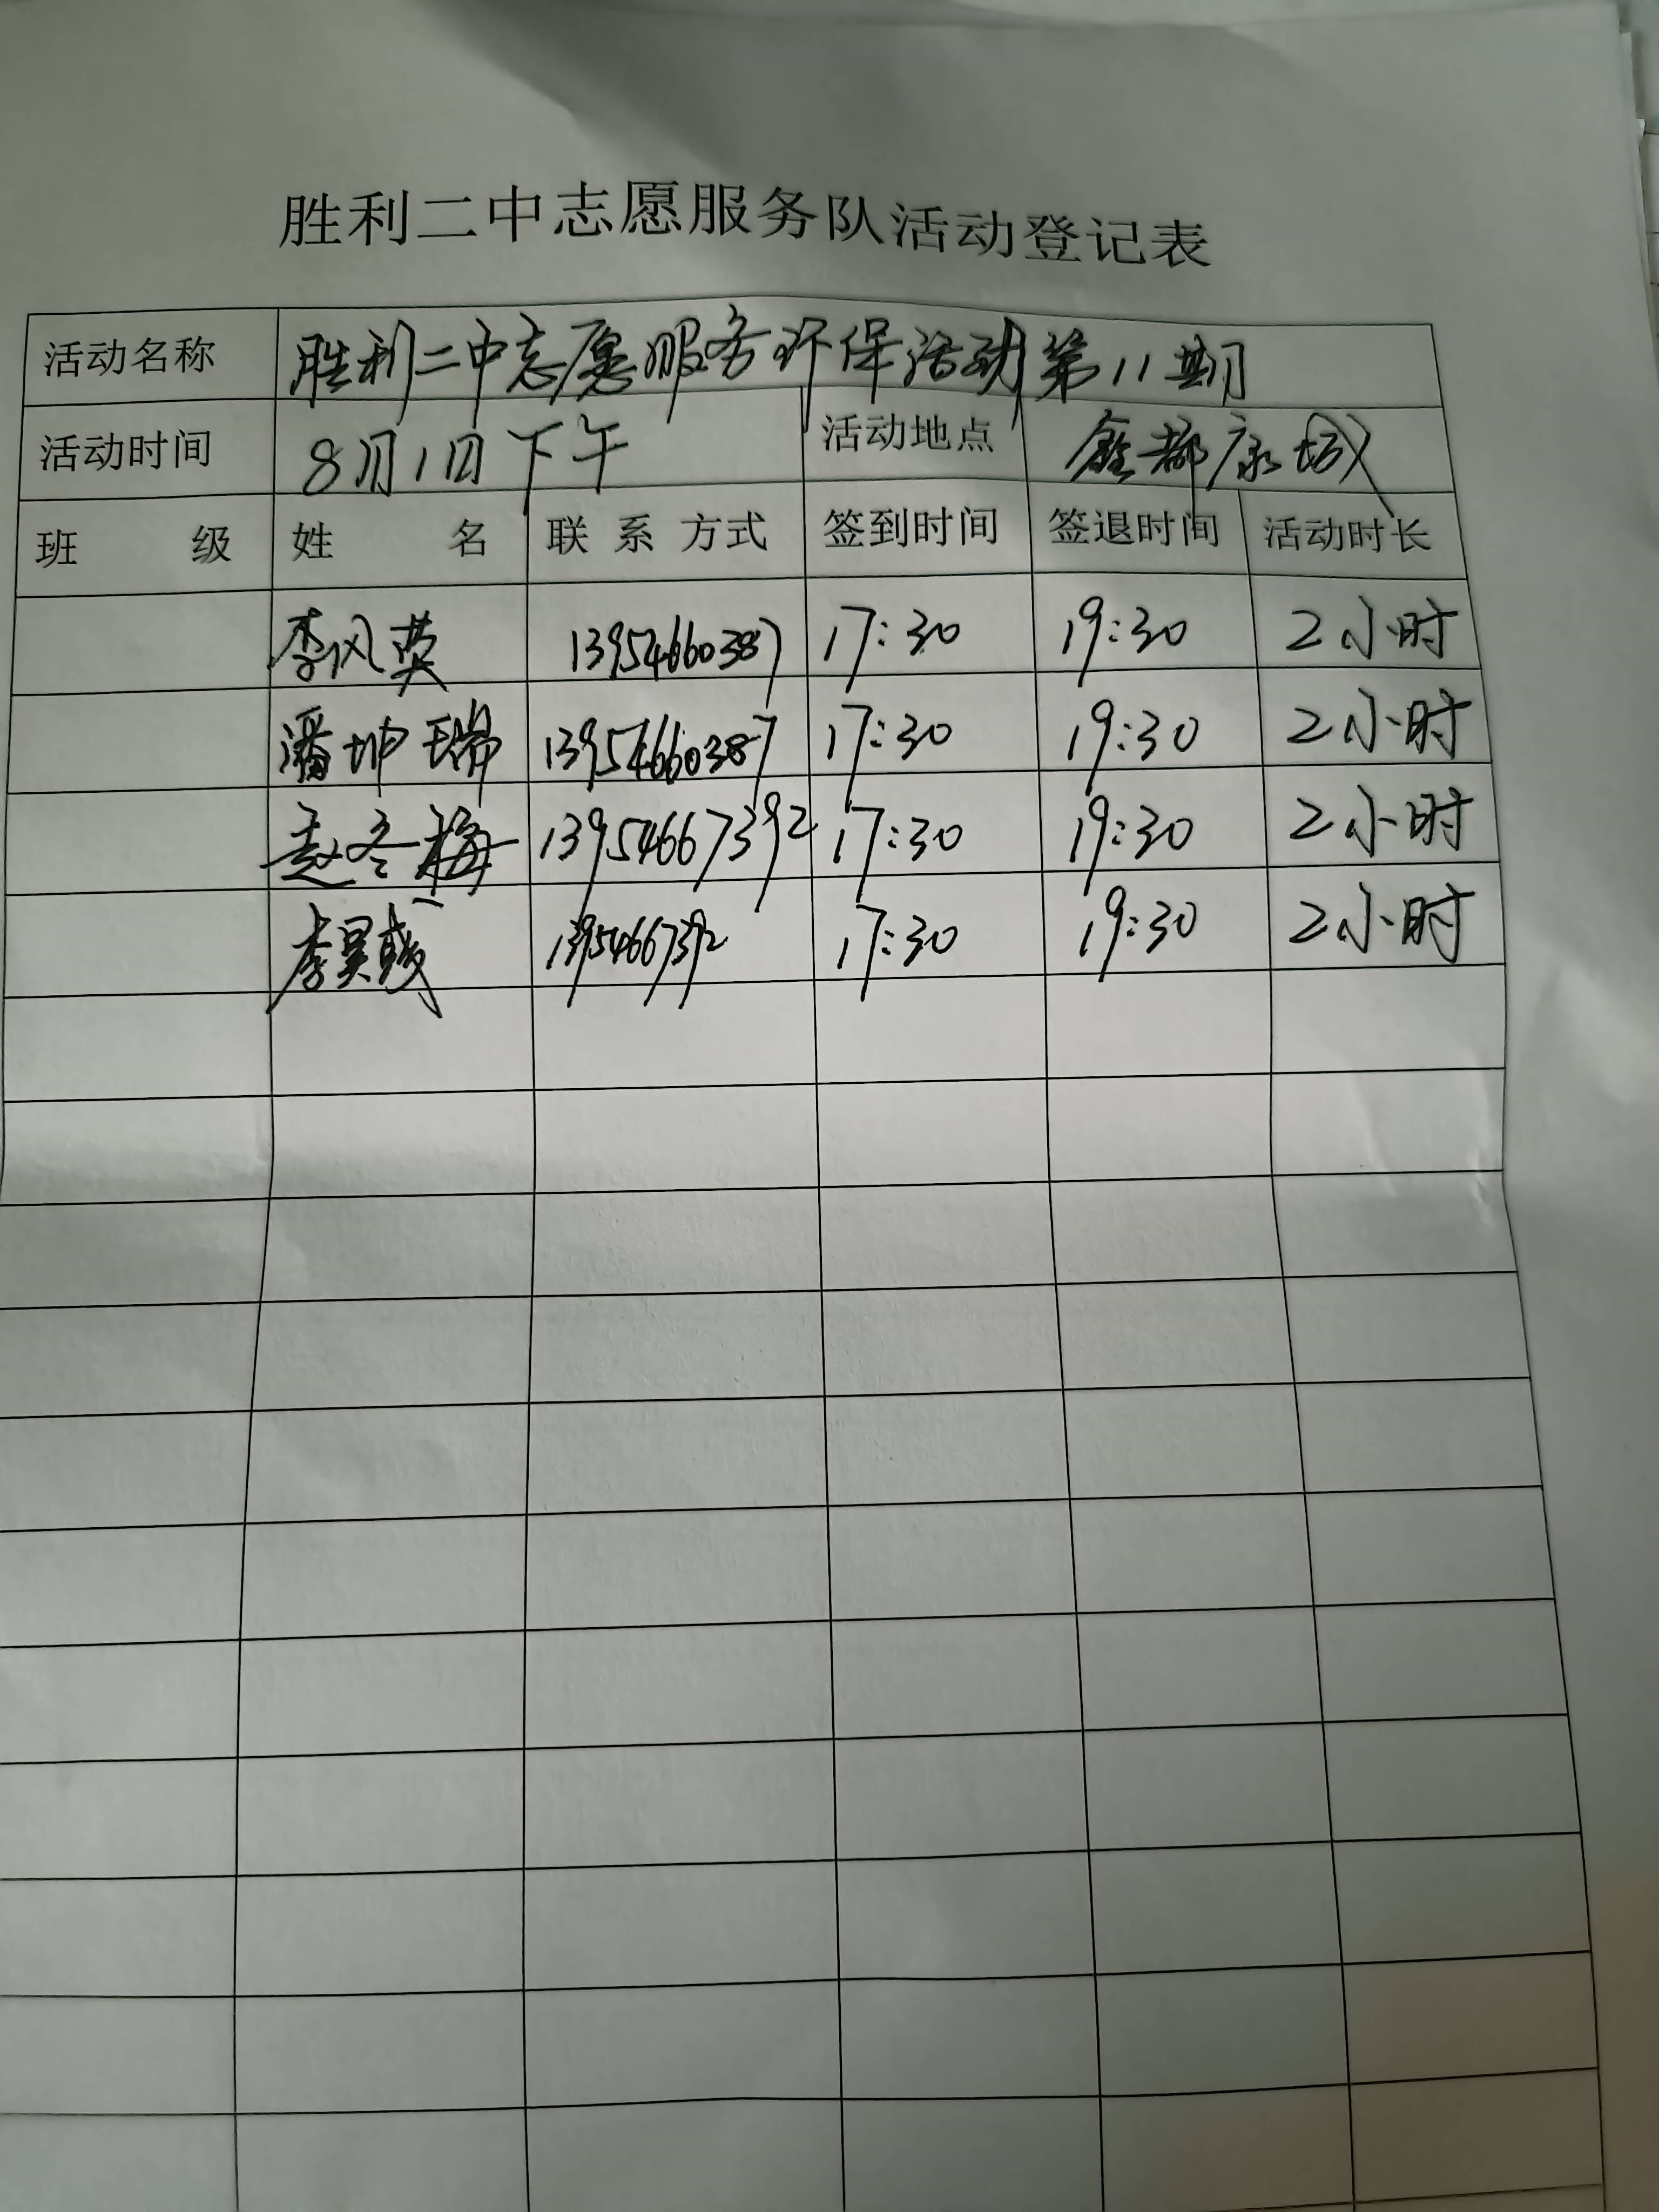 胜利二中志愿服务队活动登记表
活动名称 胜利二中志愿服务环保活动第11期
活动时间 8月1日下午 活动地点 鑫都康城
班 级 姓 名 联系方式 签到时间 签退时间 活动时长
李风英 13954660387 17:30 19:30 2小时
潘坤瑞 13954660387 17:30 19:30 2小时
赵冬梅 13954667392 17:30 19:30 2小时
李昊 13954667392 17:30 19:30 2小时